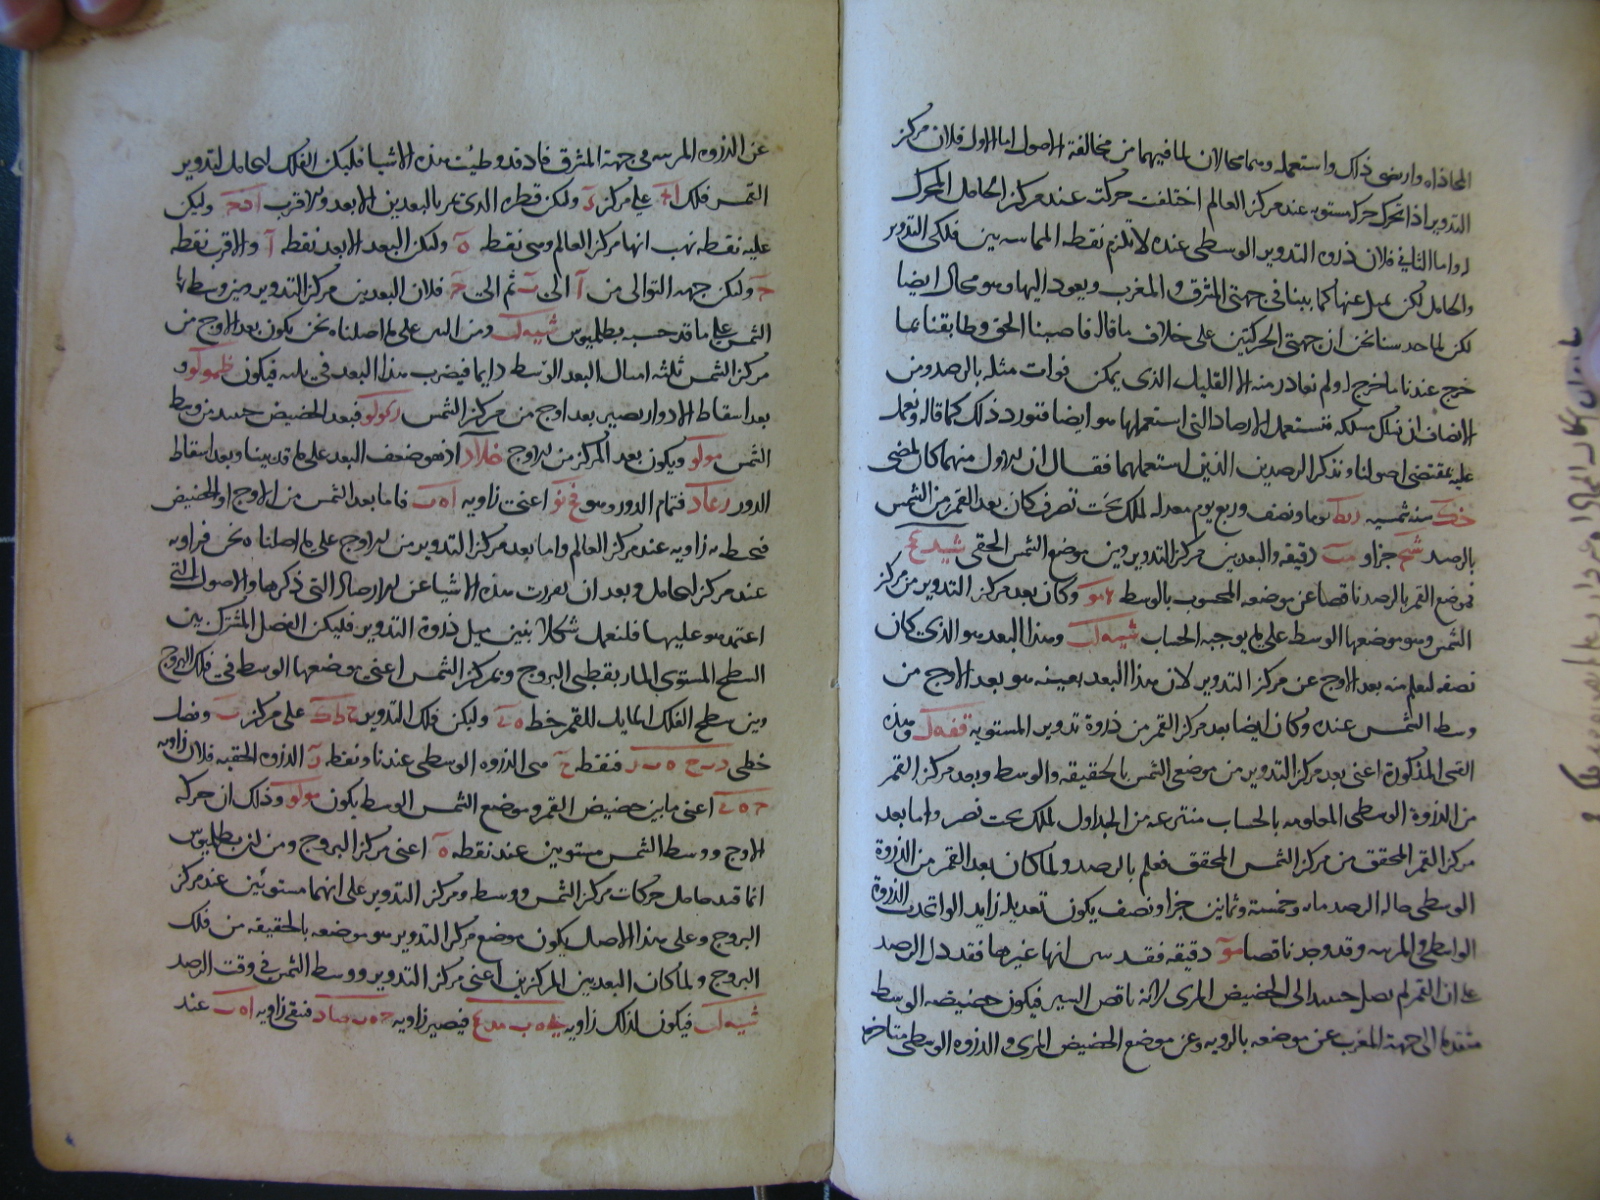 المحاذاه وارتضى ذلك واستعمله وهما محالان لما فيهما من مخالفة الاصول اما الاول فلان مركز
التدوير اذا تحرك حركه مستويه عند مركز العالم اختلفت حركته عند مركز الحامل المحرك
واما الثاني فلان ذروه التدوير الوسطى عنده لا تلزم نقطه المماسه بين فلكى التدوير
والحامل لكن تميل عنها كما بينا فى جهتى المشرق والمغرب ويعود اليها وهو محال ايضا
لكن لما حدسنا نحن ان جهتى الحركتين على خلاف ما قال فاصبنا الحق وطابقنا بما
خرج عندنا ما خرج له ولم نغادر منه الا القليل الذى يمكن فوات مثله بالرصد ومن
الانصاف ان نسلك مسلكه فنستعمل الارصاد التى استعملها هو ايضا فنورد ذلك كما قاله ونعمل
عليه بمقتضى اصولنا ونذكر الرصدين الذين استعملهما فقال ان الاول منهما كان لمضى
سنه شمسيه يوما ونصف وربع يوم معدله لملك بخت نصر فكان بعد القمر من الشمس
بالرصد جزا و دقيقه والبعد بين مركز التدوير وبين موضع الشمس الحقى
فموضع القمر بالرصد ناقصا عن موضعه المحسوب بالوسط وكان بعد مركز التدوير من مركز
الشمس وهو موضعها الوسط على ما يوجبه الحساب شيه ك وهذا البعد هو الذى كان
نصفه ليعلم منه بعد الاوج عن مركز التدوير لان هذا البعد بعينه هو بعد الاوج من
وسط الشمس عنده وكان ايضا بعد مركز القمر من ذروة تدوير المستويه قفه ك وهذه
القسى المذكورة اعنى بعد مركز التدوير من موضعى الشمس بالحقيقه والوسط وبعد مركز القمر
من الذروة الوسطى المعلومه بالحساب منتزعه من الجداول لملك بخت نصر واما بعد
مركز القمر المحقق من مركز الشمس المحقق فعلم بالرصد ولما كان بعد القمر من الذروة
الوسطى حاله الرصد مايه وخمسة وثمانين جزا ونصف يكون تعديله زايد لو اتحدت الذروة
الواسطى والمريه وقد وجد ناقصا مو دقيقه فقد تبين انها غيرها فقد دل الرصد
على ان القمر لم يصل حينيد الى الحضيض المرى لانه ناقص السير فيكون حضيضه الوسط
متقدما الى جهة المغرب عن موضعه بالرويه وعن موضع الحضيض المرى والذروه الوسطى متاخره
عن الذروه المريه فى جهة المشرق فاذ قد وطيت هذه الاشيا فليكن الفلك الحامل لتدوير
الشمس فلك على مركز د وليكن قطره الذى يمر بالبعدين الابعد والاقرب ا د ح وليكن
عليه نقطه نهب انها مركز العالم وهى نقطه ه وليكن البعد الابعد نقطه ا والاقرب نقطه
ح وليكن جهه التوالى من ا الى ب ثم الى ح فلان البعد بين مركز التدوير وبين وسط
الشمس على ما قد حسبه بطلميوس شيه ك ومن البين على ما اصلناه نحن يكون بعد الاوج من
مركز الشمس ثلثه امثال البعد الوسط دايما فيضرب هذا البعد فى ثلثه فيكون ظمو لو و
بعد اسقاط الادوار يصير بعد اوج من مركز الشمس ر كو لو فبعد الحضيض حينيد من وسط
الشمس مو لو ويكون بعد المركز من الاوج اذ هو ضعف البعد على ما قد بينا وبعد اسقاط
الدور فتمام الدور وهو اعنى زاويه ا ه ب فاما بعد الشمس من الاوج او الحضيض
فتحيط به زاويه عند مركز العالم واما بعد مركز التدوير من الاوج على ما اصلناه نحن فزاويه
عند مركز الحامل وبعد ان تقررت هذه الاشيا عن الارصاد التى ذكرها والاصول التى
اعتمد هو عليها فلنعمل شكلا نبين ميل ذروة التدوير فليكن الفصل المشترك بين
السطح المستوى المار بقطبى البروج وبمركز الشمس اعنى موضعها الوسط فى فلك البروج
وبين سطح الفلك المايل للقمر خط وليكن فلك التدوير ح ط ك على مركز ب ونصل
خطى د ب ح ه ب ر فنقطه ح هى الذروه الوسطى عندنا ونقطه ر الذروه الحقيه فلان زاويه
اعنى ما بين حضيض القمر وموضع الشمس الوسط يكون مو لو وذلك ان حركه
الاوج ووسط الشمس مستويين عند نقطه ه اعنى مركز البروج ومن لدن بطلميوس
انما قيد حامل حركات مركز الشمس ووسطه ومركز التدوير على انهما مستويين عند مركز
البروج وعلى هذا الاصل يكون موضع مركز التدوير هو موضعه بالحقيقه من فلك
البروج ولما كان البعد بين المركزين اعنى مركز التدوير ووسط الشمس فى وقت الرصد
شيه ك فيكون لذلك زاويه فيصير زاويه فتبقى زاويه ا ه ب عند